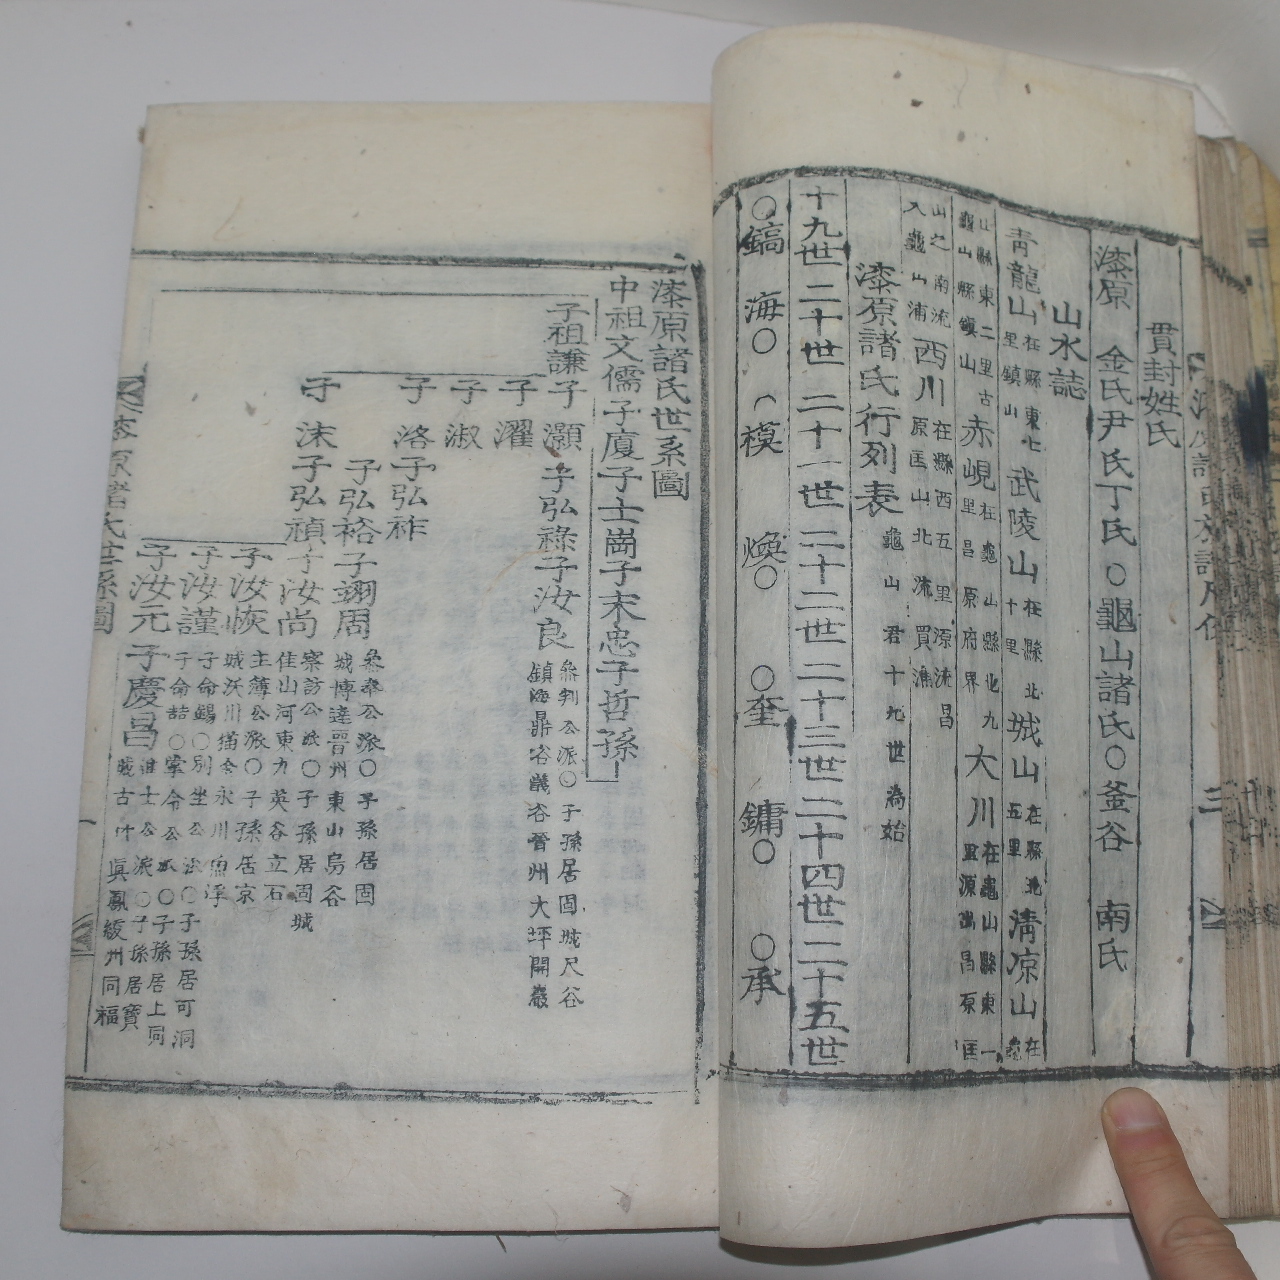 貫封姓氏
漆原 金氏尹氏丁氏○龜山諸氏○釜谷 南氏
山水誌
青龍山在縣東七里鎮山 武陵山在縣北十里 城山在縣北五里 清凉山在龜
山縣東二里古龜山縣鎮山 赤峴在龜山縣北九里昌原府界 大川在龜山縣東一里源出昌原匡
山之南流入龜山浦 西川在縣西五里源流昌原匡山北流買漁
漆原諸氏行列表 龜山君十九世為始
十九世二十世二十一世二十二世二十三世二十四世二十五世
○鎬 海○ 模 煥○ ○奎 鏞○ ○承
漆原諸氏世系圖
中祖文儒子廈子士崗子末忠子哲孫
子祖謙子灝子弘祿子汝良 參判公派○子孫居固城尺谷鎮海鼎谷 谷晉州大坪開巖
子濯
子淑
子洛子弘祚
子弘裕子翊周 參奉公派○子孫居固城博達晋州東山烏谷
子沫子弘禎子汝尚 察訪公派○子孫居固城佳山河東九英谷立石
子汝恢 主簿公派○子孫居京城沃川 永川
子汝謹 子命錫○別坐公派○子孫居可洞子命喆○掌令公派○子孫居上同
子汝元子慶昌 進士公派○子孫居寶城古 眞鳳綾州同福
漆原諸氏世系圖 一
三